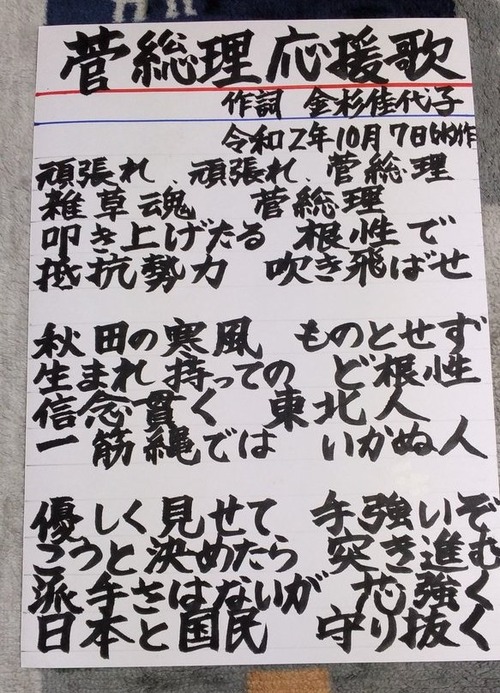 菅総理応援歌
作詞 金杉佳代子
令和2年10月7日(水)作
頑張れ、頑張れ、菅総理
雑草魂 菅総理
叩き上げたる 根性で
抵抗勢力 吹き飛ばせ
秋田の寒風 ものとせず
生まれ持っての ど根性
信念貫く 東北人
一筋縄では いかぬ人
優しく見せて 手強いぞ
こうと決めたら 突き進む
派手さはないが 芯強く
日本と国民 守り抜く